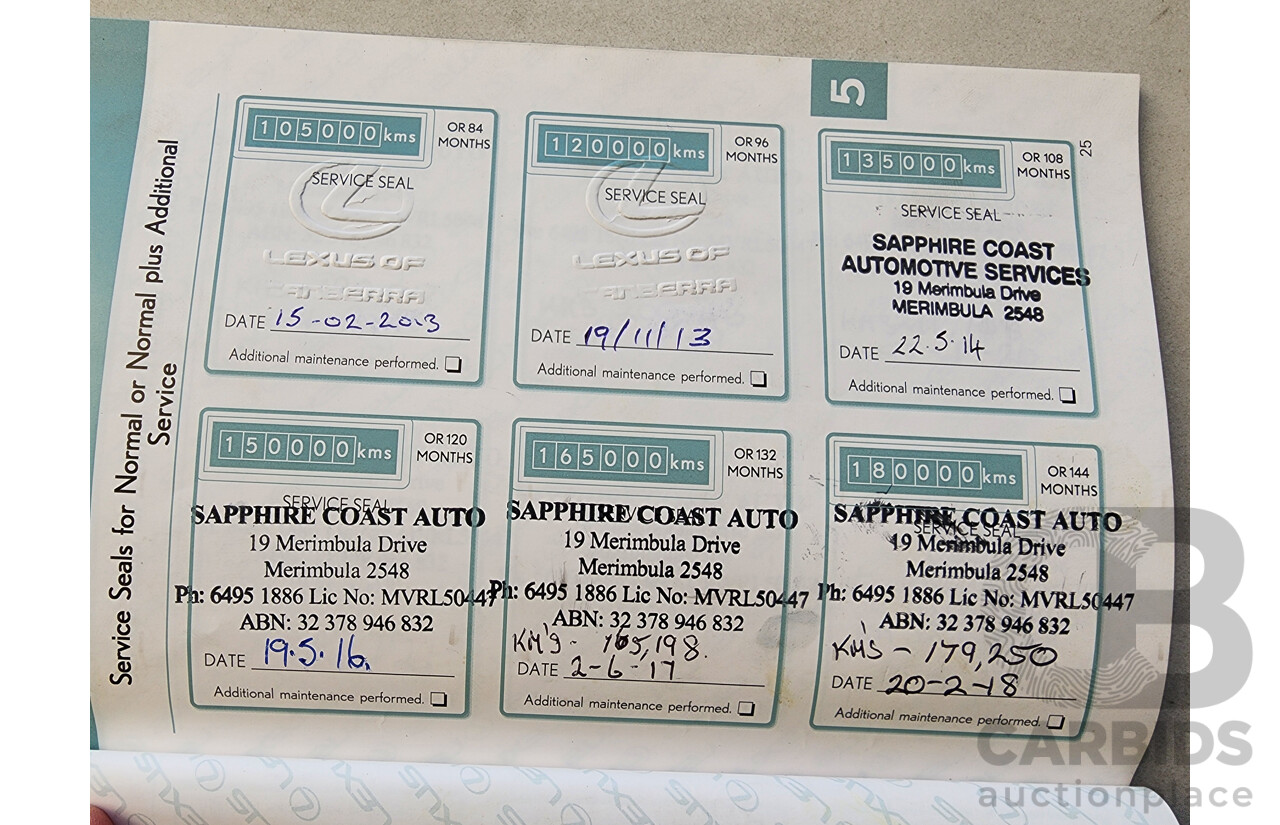 Service Seals for Normal or Normal plus Additional
Service
5
25
105000kms
OR 84
MONTHS
SERVICE SEAL
LEXUS OF
CANBERRA
DATE 15-02-2013
Additional maintenance performed.
120000kms
OR 96
MONTHS
SERVICE SEAL
LEXUS OF
CANBERRA
DATE 19/11/13
Additional maintenance performed.
135000kms
OR 108
MONTHS
SERVICE SEAL
SAPPHIRE COAST
AUTOMOTIVE SERVICES
19 Merimbula Drive
MERIMBULA 2548
DATE 22.5.14
Additional maintenance performed.
150000kms
OR 120
MONTHS
SERVICE SEAL
SAPPHIRE COAST AUTO
19 Merimbula Drive
Merimbula 2548
Ph: 6495 1886 Lic No: MVRL50447
ABN: 32 378 946 832
DATE 19.5.16.
Additional maintenance performed.
165000kms
OR 132
MONTHS
SERVICE SEAL
SAPPHIRE COAST AUTO
19 Merimbula Drive
Merimbula 2548
Ph: 6495 1886 Lic No: MVRL50447
ABN: 32 378 946 832
KM'S - 165,198.
DATE 2-6-17
Additional maintenance performed.
180000kms
OR 144
MONTHS
SERVICE SEAL
SAPPHIRE COAST AUTO
19 Merimbula Drive
Merimbula 2548
Ph: 6495 1886 Lic No: MVRL50447
ABN: 32 378 946 832
KM'S - 179,250
DATE 20-2-18
Additional maintenance performed.
CARBIDS
auctionplace